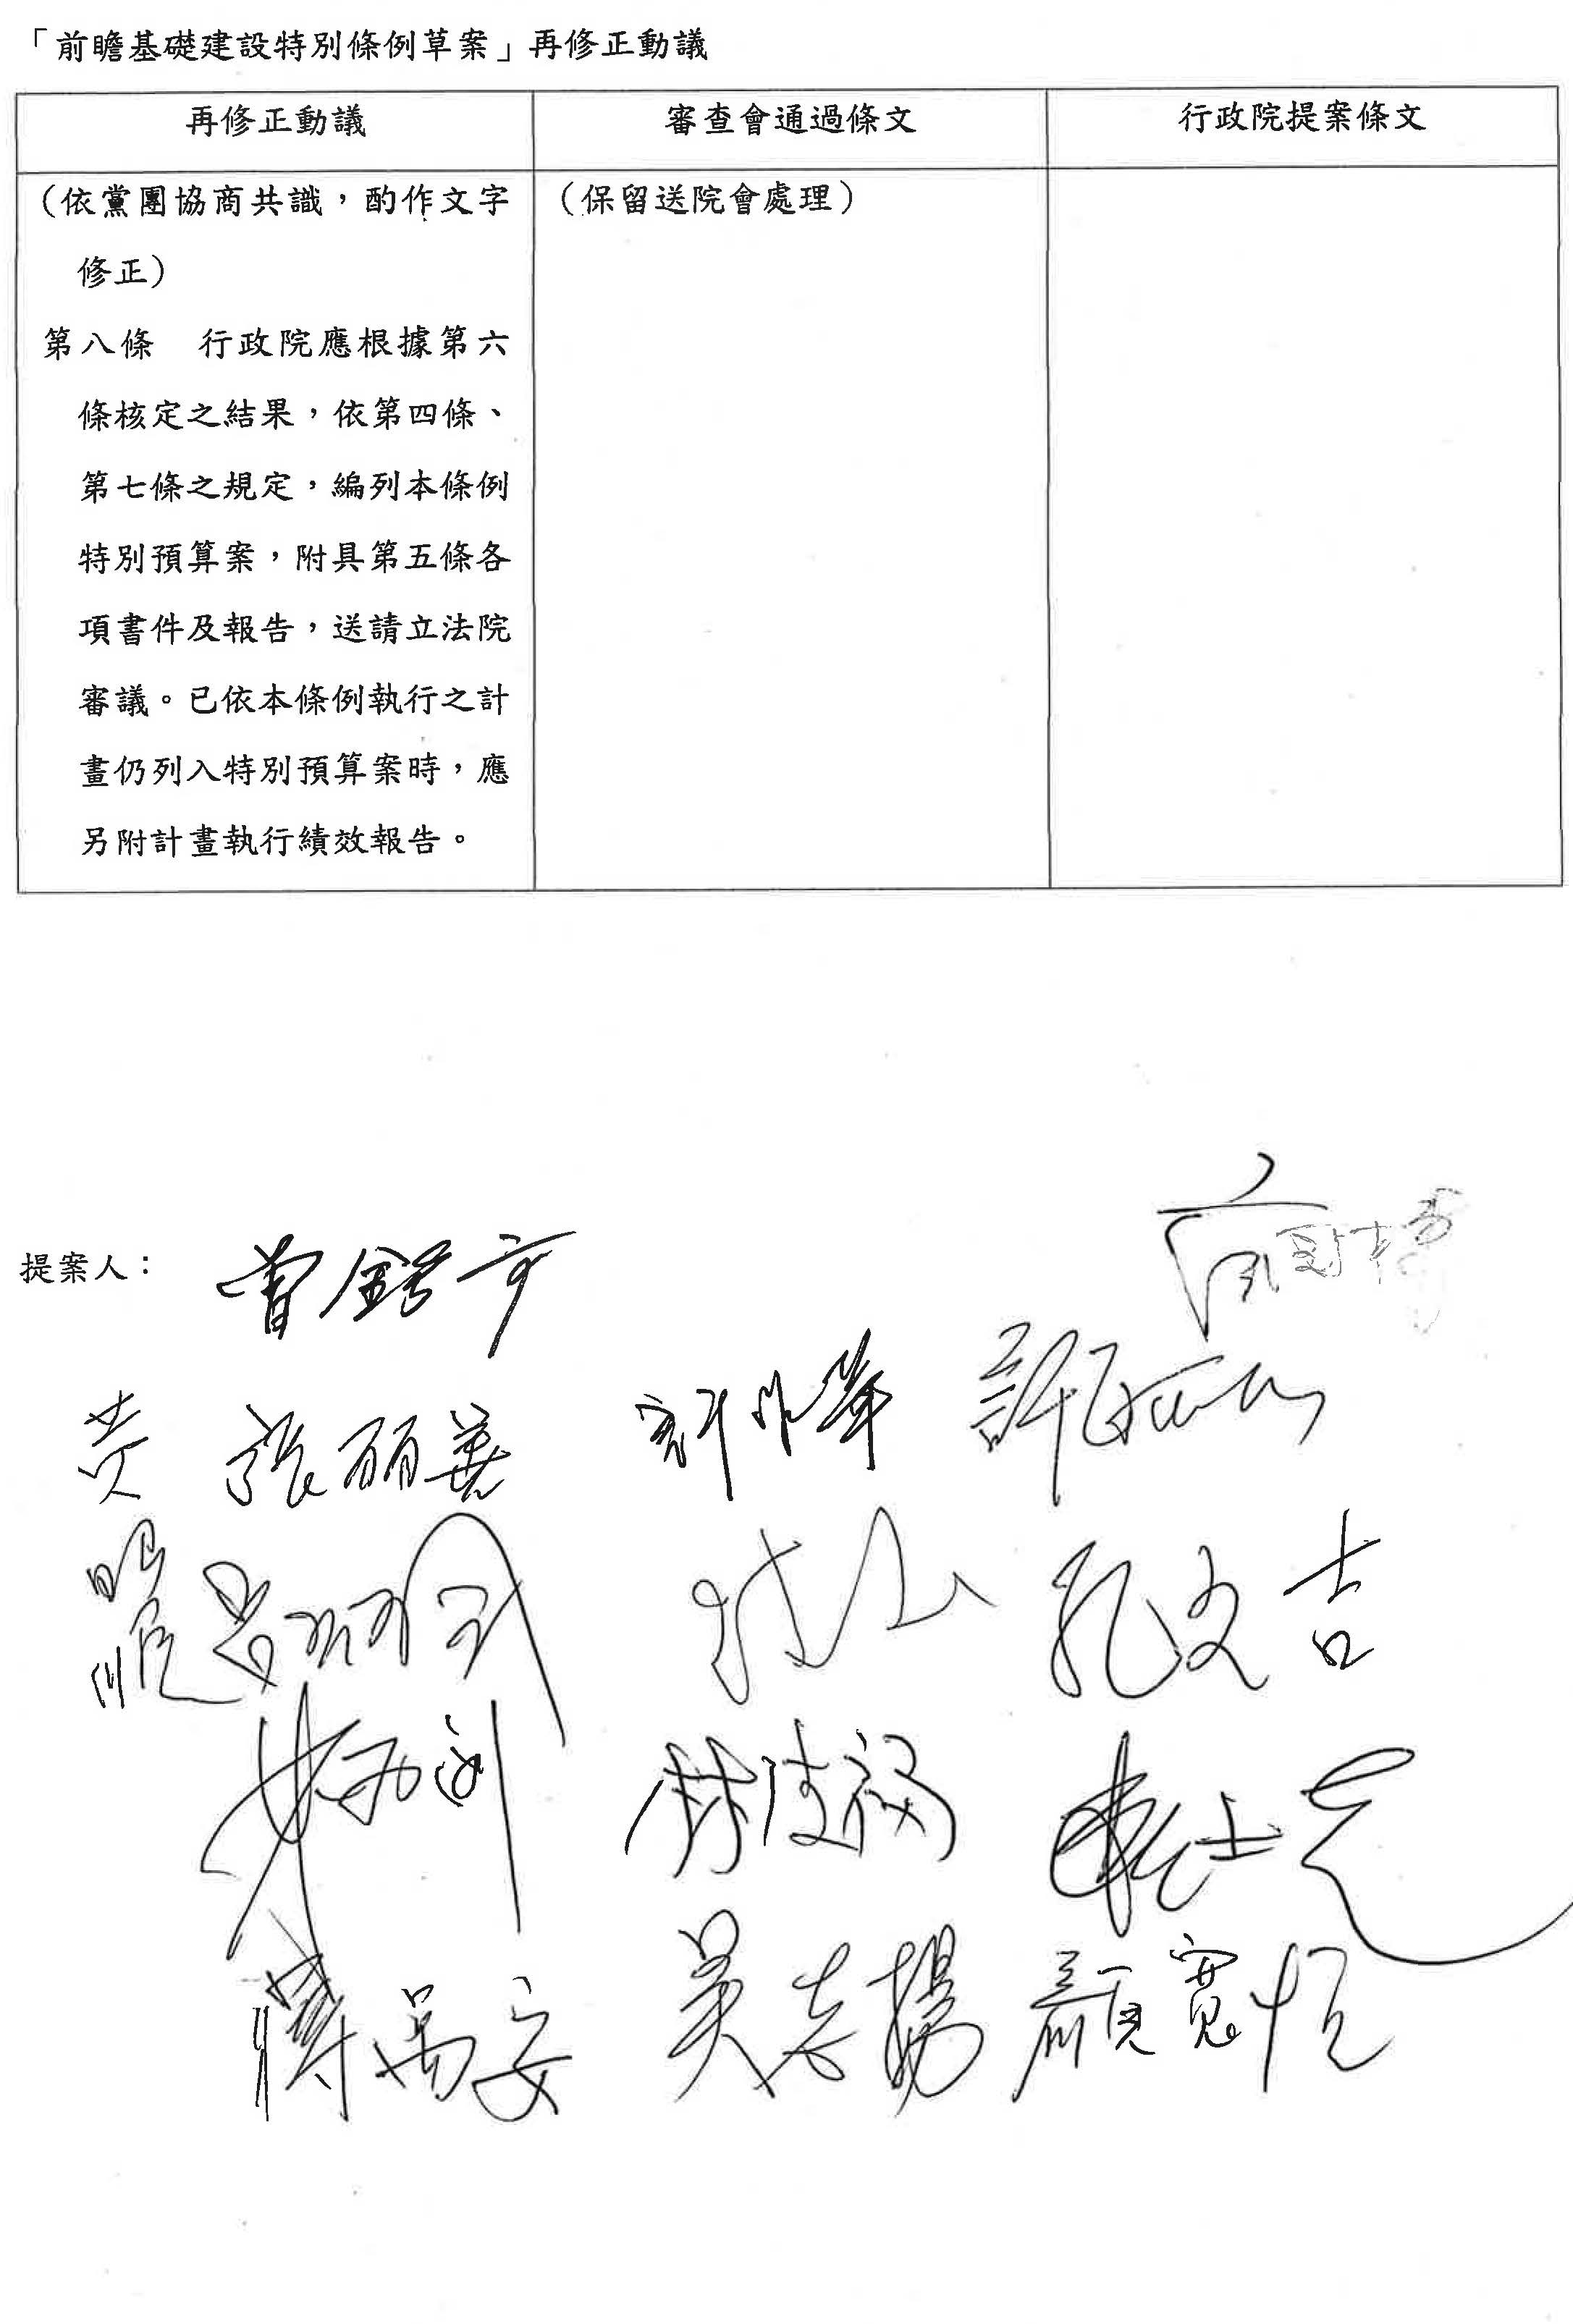 「前瞻基礎建設特別條例草案」再修正動議
再修正動議
審查會通過條文
行政院提案條文
(依黨團協商共識，酌作文字
修正)
第八條　行政院應根據第六
條核定之結果，依第四條、
第七條之規定，編列本條例
特別預算案，附具第五條各
項書件及報告，送請立法院
審議。已依本條例執行之計
畫仍列入特別預算案時，應
另附計畫執行績效報告。
(保留送院會處理)
提案人：
曾銘宗
黃昭順
張麗善
許淑華
許毓仁
孔文吉
林德福
陳
吳志揚
顏寬恒